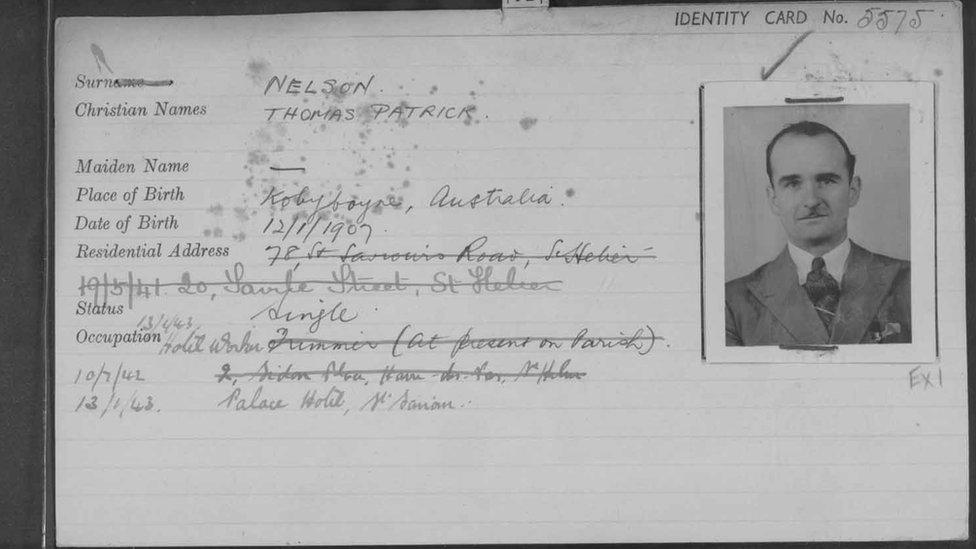 IDENTITY CARD No. 5575
Surname NELSON.
Christian Names THOMAS PATRICK.
Maiden Name —
Place of Birth Kobyboyne, Australia.
Date of Birth 12/1/1907
Residential Address 78, St Saviours Road, St Helier
19/5/41 20, Savile Street, St Helier
Status Single
13/1/43
Occupation Hotel Worker Trimmer (At present on Parish).
10/7/42 2, Place, Havre des Pas, St Helier
13/1/43. Palace Hotel, St Saviour.
EX1